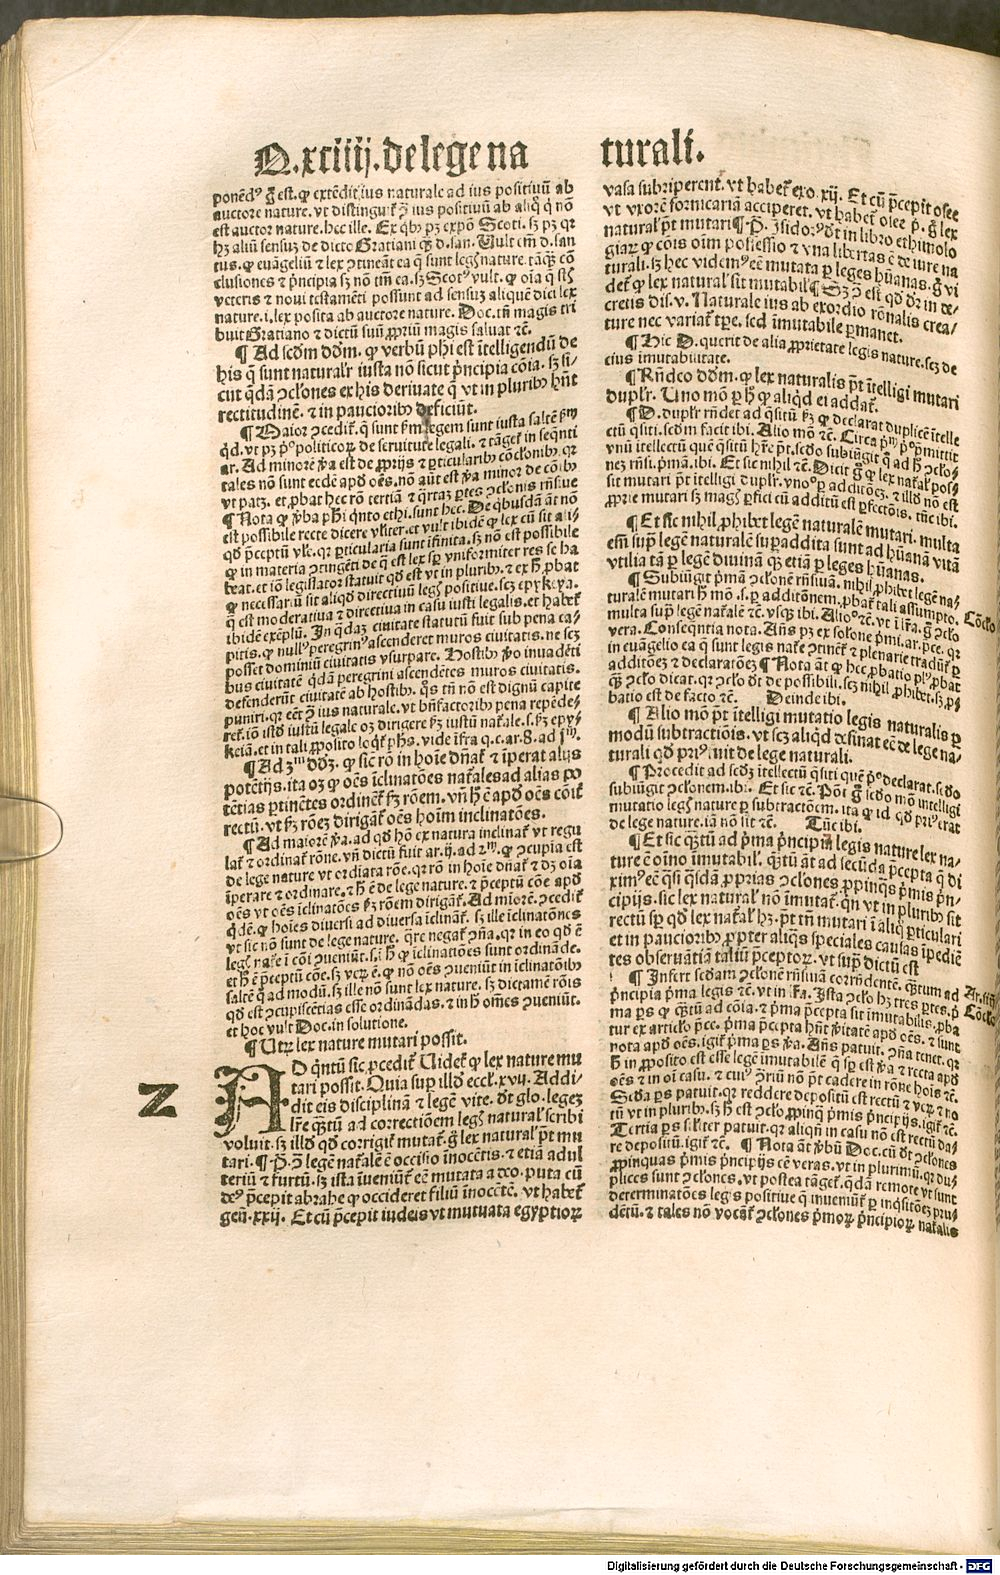 Q.xciiij.de lege na
ponēdꝰ g̃ est. ꝙ extēdit ius naturale ad ius positiuū ab
auctore nature. vt distinguit̃ ꝯ̃ ius positiuū ab aliq̊ q̊ nō
est auctor nature. hec ille. Ex q̇bꝫ pꝫ expō Scoti. sꝫ pꝫ qꝛ
hꝫ aliū sensuꝫ de dicto Gratiani q̃ꝫ d. san. Uult em̄ d. san
tus. ꝙ euāgeliū ⁊ lex ↄtineāt ea q̄ sunt legꝭ nature. tāq̃ꝫ cō
clusiones ⁊ p̃ncipia sꝫ nō tm̄ ea. sꝫ Scotꝰ vult. ꝙ oīa q̄ sūt
veteris ⁊ noui testamēti possunt ad sensuꝫ aliquē dici lex
nature. i. lex posita ab auctore nature. Doc. tn̄ magis tri
buit Gratiano ⁊ dictū suū ꝓpriū magis saluat ⁊c̃.
¶ Ad scd̓m dd̓m. ꝙ verbū phi est ītelligendū de
his q̄ sunt naturalr̃ iusta nō sicut p̃ncipia cōia. sꝫ si-
cut q̄dā ↄcl̓ones ex his deriuate q̄ vt in pluribꝫ hn̄t
rectitudinē. ⁊ in paucioribꝫ deficiūt.
¶ Maior ↄcedit̃. q̄ sunt ẜm legem sunt iusta saltē ẜm
q̇d. vt pꝫ pͦ politicoꝝ de seruitute legali. ⁊ tāget̃ in seq̄nti
ar. Ad minorē v̓a est de ꝓprijs ⁊ ꝑticularibꝫ ↄcl̓onibꝫ. qꝛ
tales nō sunt eedē apd̓ oēs. nō aūt est v̓a minor de cōibꝫ
vt patꝫ. et ꝓbat hec rō tertiā ⁊ q̄rtaꝫ ꝑtes ↄcl̓onis rn̄siue
¶ Nota ꝙ v̓ba ph̓i q̇nto ethi. sunt hec. De q̇busdā āt nō
est possibile recte dicere vl̓iter. et vult ibidē ꝙ lex cū sit ali-
qd̓ p̃ceptū vl̓e. qꝛ ꝑticularia sunt īfinita. sꝫ nō est possibile
ꝙ in materia ↄtingēti de q̄ est lex sꝑ vniformiter res se ha
beat. et iō legislator statuit qd̓ est vt in pluribꝫ. ⁊ ex h̊ ꝓbat
ꝙ necessariū sit aliqd̓ directiuū legꝭ positiue. scꝫ epykeya.
q̄ est moderatiua ⁊ directiua in casu iusti legalis. et habet̃
ibidē exēplū. In q̄daꝫ ciuitate statutū fuit sub pena ca-
pitis. ꝙ nullꝰ peregrinꝰ ascenderet muros ciuitatis. ne scꝫ
posset dominiū ciuitatis vsurpare. Hostibꝫ v̓o inuadēti
bus ciuitatē q̇dā peregrini ascendētes muros ciuitatis.
defenderūt ciuitatē ab hostibꝫ. q̊s tn̄ nō est dignū capite
puniri. qꝛ eēt ꝯ̃ ius naturale. vt bn̄factoribꝫ pena repēde-
ret̃. iō istd̓ iustū legale oꝫ dirigere ẜꝫ iustū nat̃ale. s. ẜꝫ epy-
keiā. et in tali ꝓposito loq̇t̃ phs. vide īfra q. c. ar. 8. ad jᵐ.
¶ Ad 3ᵐ dd̓ꝫ. ꝙ sic̃ rō in hoīe dn̄at̃ ⁊ īperat alijs
potētijs. ita oꝫ ꝙ oēs īclinatōes nat̃ales ad alias po
tētias ꝑtinētes ordinēt̃ ẜꝫ rōem. vn̄ h̊ ē apd̓ oēs cōit̃
rectū. vt ẜꝫ rōeꝫ dirigāt̃ oēs hoīm inclinatōes.
¶ Ad maiorē v̓a. ad qd̓ hō ex natura inclinat̃ vt regu
lat̃ ⁊ ordinat̃ rōne. vn̄ dictū fuit ar. ij. ad 2ᵐ. ꝙ ↄcupia est
de lege nature vt ordīata rōe. qꝛ rō in hoīe dn̄at̃ ⁊ dꝫ oīa
īperare ⁊ ordinare. ⁊ h̊ ē de lege nature. ⁊ p̃ceptū cōe apd̓
oēs vt oēs īclinatōes ẜꝫ rōem dirigāt̃. Ad miorē. ↄcedit̃
q̇dē. ꝙ hoīes diuersi ad diuersa īclināt̃. sꝫ ille īclinatōnes
vt sic nō sunt de lege nature. q̄re negat̃ ↄn̄a. qꝛ in eo qd̓ ē
legꝭ nat̃e ī cōi ↄueniūt. s. ī h̊ ꝙ īclinatōes sunt ordināde.
et h̊ ē p̃ceptū cōe. sꝫ veꝝ ē. ꝙ nō oēs ↄueniūt in īclinatōibꝫ
saltē q̄ ad modū. sꝫ ille nō sunt lex nature. sꝫ dictamē rōis
qd̓ est ↄcupiscētias esse ordinādas. ⁊ in h̊ om̄es ↄueniūt.
et hoc vult Doc. in solutione.
¶ Utꝝ lex nature mutari possit.
Z
AD q̇ntū sic ꝓcedit̃ Uidet̃ ꝙ lex nature mu
tari possit. Quia suꝑ illd̓ eccl̓. xvij. Addi-
dit eis disciplinā ⁊ legē vite. d̓t glo. legeꝫ
lr̃e q̃ꝫtū ad correctiōem legꝭ natural̓ scribi
voluit. sꝫ illd̓ qd̓ corrigit̃ mutat̃. g̃ lex natural̓ p̃t mu
tari. ¶ P. ꝯ̃ legē nat̃alē ē occisio īnocētis. ⁊ etiā adul
teriū ⁊ furtū. sꝫ ista īueniūt̃ eē mutata a deo. puta cū
deꝰ p̃cepit abrahe ꝙ occideret filiū īnocētē. vt habet̃
gen̄. xxij. Et cū p̃cepit iudeis vt mutuata egyptioꝝ
turali.
vasa subriperent. vt habet̃ exo. xij. Et cū p̃cepit osee
vt vxorē fornicariā acciperet. vt habet̃ osee p̊. g̃ lex
natural̓ p̃t mutari ¶ P. Isidorꝰ d̓t in libro ethimolo
giaꝝ ꝙ cōis oīm possessio ⁊ vna libertas ē de iure na
turali. sꝫ hec videmꝰ eē mutata ꝑ leges hūanas. g̃ vi
det̃ ꝙ lex natural̓ sit mutabil̓ ¶ Sꝫ ꝯ̃ est qd̓ d̓r in de-
cretis dis. v. Naturale ius ab exordio rōnalis crea/
ture nec variat̃ tꝑe. sed īmutabile ꝑmanet.
¶ Hic D. querit de alia ꝓprietate legis nature. scꝫ de
eius imutabilitate.
¶ Rn̄deo dd̓m. ꝙ lex naturalis p̃t ītelligi mutari
duplr̃. Uno mō ꝑ h̊ ꝙ aliqd̓ ei addat̃.
¶ D. duplr̃ rn̄det ad q̄sitū ẜꝫ ꝙ declarat duplicē ītelle
ctū q̄siti. scd̓m facit ibi. Alio mō ⁊c̃. Circa p̊ᵐ p̊ p̃mittit
vnū ītellectū quē q̄sitū hr̃e p̃t. scd̓o subiūgit q̄ ad h̊ ↄcl̓o-
neꝫ rn̄si. p̊mā. ibi. Et sic nihil ⁊c̃. Dicit g̃ ꝙ lex nat̃al̓ pos-
sit mutari p̃t ītelligi duplr̃. vnoᵒ ꝑ additōeꝫ. ⁊ illd̓ nō est
ꝓprie mutari sꝫ magꝭ ꝑfici cū additū est ꝑfectōis. tūc ibi.
¶ Et sic nihil ꝓhibet legē naturalē mutari. multa
em̄ supͣ legē naturalē suꝑaddita sunt ad hūanā vitā
vtilia tā ꝑ legē diuinā q̃ꝫ etiā ꝑ leges hūanas.
¶ Subiūgit p̊mā ↄcl̓onē rn̄siuā. nihil ꝓhibet legē na-
turalē mutari h̊ mō. s. ꝑ additōnem. ꝓbat̃ tali assumpto.
Cōcl̓o
multa supͣ legē nat̃alē ⁊c̃. vsqꝫ ibi. Alioᵒ ⁊c̃. vt ī lr̃a. g̃ ↄcl̓o
vera. Conseq̄ntia nota. An̄s pꝫ ex sol̓one p̊mi. ar. p̃ce. qꝛ
in euangelio ea q̄ sunt legis nat̃e ↄtinēt̃ ⁊ plenarie tradūt̃ ꝑ
additōeꝫ ⁊ declaratōeꝫ ¶ Nota āt ꝙ hec ꝓbatio plꝰ ꝓbat
q̃ꝫ ↄcl̓o dicat. qꝛ ↄcl̓o d̓t de possibili. scꝫ nihil ꝓhibet. sꝫ ꝓ-
batio est de facto ⁊c̃. Deinde ibi.
¶ Alio mō p̃t ītelligi mutatio legis naturalis ꝑ
modū subtractiōis. vt scꝫ aliqd̓ desinat eē de lege na-
turali qd̓ priꝰ fuit de lege naturali.
¶ Procedit ad scd̓ꝫ ītellectū q̄siti quē p̊ declarat. scd̓o
subiūgit ↄcl̓onem. ibi. Et sic ⁊c̃. Pōt g̃ scd̓o mō intelligi
mutatio legꝭ nature ꝑ subtractiōem. ita ꝙ id qd̓ priꝰ erat
de lege nature. iā nō sit ⁊c̃. Tūc ibi.
¶ Et sic q̃ꝫtū ad p̊ma p̃ncipia legis nature lex na-
ture ē oīno īmutabil̓. q̃ꝫtū āt ad secūda p̃cepta q̄ di
ximꝰ eē q̄si q̄sdā ꝓprias ↄcl̓ones ꝓpinq̄s p̊mis p̃n-
cipijs. sic lex natural̓ nō īmutat̃. q̇n vt in pluribꝫ sit
rectū sꝑ qd̓ lex nat̃al̓ hꝫ. p̃t tn̄ mutari ī aliq̊ ꝑticulari
et in paucioribꝫ ꝓpter aliq̄s speciales causas īpediē
tes obseruātiā taliū p̃ceptoꝝ. vt supͣ dictū est
¶ Infert scd̓am ↄcl̓onē rn̄siuā corrn̄dentē. q̃ꝫtum ad
Cōcl̓o
p̃ncipia p̊ma legis ⁊c̃. vt in lr̃a. Ista ↄcl̓o hꝫ tres ꝑtes. p̊
ma ꝑs ꝙ q̃ꝫtū ad cōia. ⁊ p̊ma p̃cepta sit īmutabilis. ꝓba
tur ex articl̓o p̃ce. p̊ma p̃cepta hn̄t v̓itatē apd̓ oēs. ⁊ sunt
nota apd̓ oēs. igit̃ p̊ma ꝑs v̓a. An̄s patuit. ↄn̄a tenet. qꝛ
h̊ in ꝓposito est esse legē īmutabilē q̄ sꝑ est v̓a ⁊ recta apd̓
oēs ⁊ in oī casu. ⁊ cuiꝰ ꝯ̃riū nō p̃t cadere in rōne hoīs ⁊c̃.
Scd̓a ꝑs patuit. qꝛ reddere depositū est rectū ⁊ veꝝ ⁊ no
tū vt in pluribꝫ. sꝫ h̊ est ↄcl̓o ꝓpinq̄ p̊mis p̃ncipijs. igit̃ ⁊c̃.
Tertia ꝑs sil̓iter patuit. qꝛ aliqn̄ in casu nō est rectū red̓
re depositū. igit̃ ⁊c̃. ¶ Nota āt v̓bū Doc. cū d̓t ↄcl̓ones
ꝓpinquas p̊mis p̃ncipijs eē veras. vt in plurimū. qꝛ du-
plices sunt ↄcl̓ones. vt postea tāget̃. q̄dā remote vt sunt
determinatōes legis positiue q̄ inueniūt̃ ꝑ inq̇sitōeꝫ pru-
dētū. ⁊ tales nō vocāt̃ ↄcl̓ones p̊moꝝ p̃ncipioꝝ nat̃alis
Digitalisierung gefördert durch die Deutsche Forschungsgemeinschaft - DFG